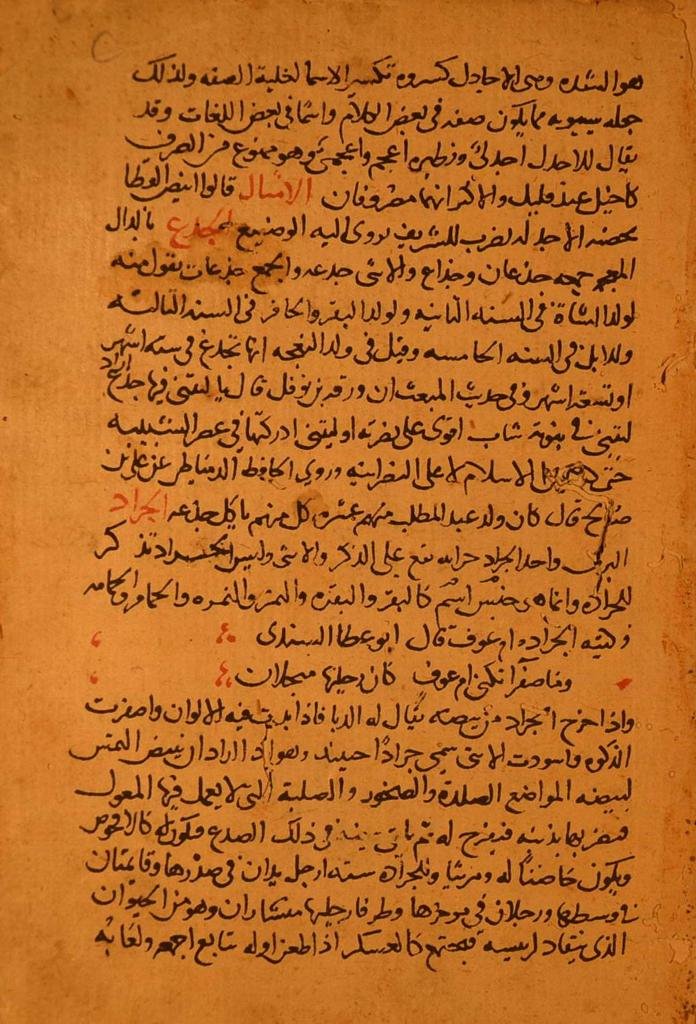 هو الشده وهى الاجادل كسروه تكسير الاسما لغلبة الصفه ولذلك
جعله سيبويه مما يكون صفه فى بعض الكلام واسمًا فى بعض اللغات وقد
يقال للاجدل اجدلى ونظيره اعجم واعجمى وهو ممنوع من الصرف
كاخيل عند قليل والاكثر انهما مصروفان الامثال قالوا بيض القطا
يحضنه الاجدل يضرب للشريف يووى اليه الوضيع الجدع بالدال
المعجمه جمعه جذعان وجذاع والانثى جذعه والجمع جذعات تقول منه
لولد الشاة فى السنه الثانيه ولولد البقر والحافر فى السنه الثالثه
وللابل فى السنه الخامسه وقيل فى ولد النعجه انها تجذع فى سته اشهر
او تسعه اشهر وفى حديث المبعث ان ورقه بن نوفل قال يا ليتنى فيها جذع اراد
ليتنى فى نبوته شاب اقوى على نصرته او ليتنى ادركتها فى عصر الشبيبه
حتى الاسلام لا على النصرانيه وروى الحافظ الدمياطى عن على بن
صالح قال كان ولد عبد المطلب منهم عشره كل منهم ياكل جذعه الجراد
البرى واحد الجراد جراده يقع على الذكر والانثى وليس الجراد تذكر
للجراده وانما هى جنس اسم كالبقر والبقره والتمر والتمره والحمام والحمامه
وكنيه الجراده ام عوف قال ابو عطا السندى
وما صفرا تكنى ام عوف كان رجليها منجلان
واذا خرج الجراد من بيضه يقال له الدبا فاذا بدت فيه الالوان واصفرت
الذكوره واسودت الانثى سمى جرادًا حينئذ وهو اذا اراد ان يبيض التمس
لبيضه المواضع الصلدة والصخور والصلبة التى لا يعمل فيها المعول
فيضربها بذنبه فتفرج له ثم يلقى بيضه فى ذلك الصدع فيكون له كالافحوص
ويكون حاضنًا له ومربيًا وللجراده سته ارجل يدان فى صدرها وقايمتان
فى وسطها ورجلان فى موخرها وطرفا رجليها منشاران وهو من الحيوان
الذى ينقاد لرييسه فيجتمع كالعسكر اذا ظعن اوله تتابع اجمعه ولعابه